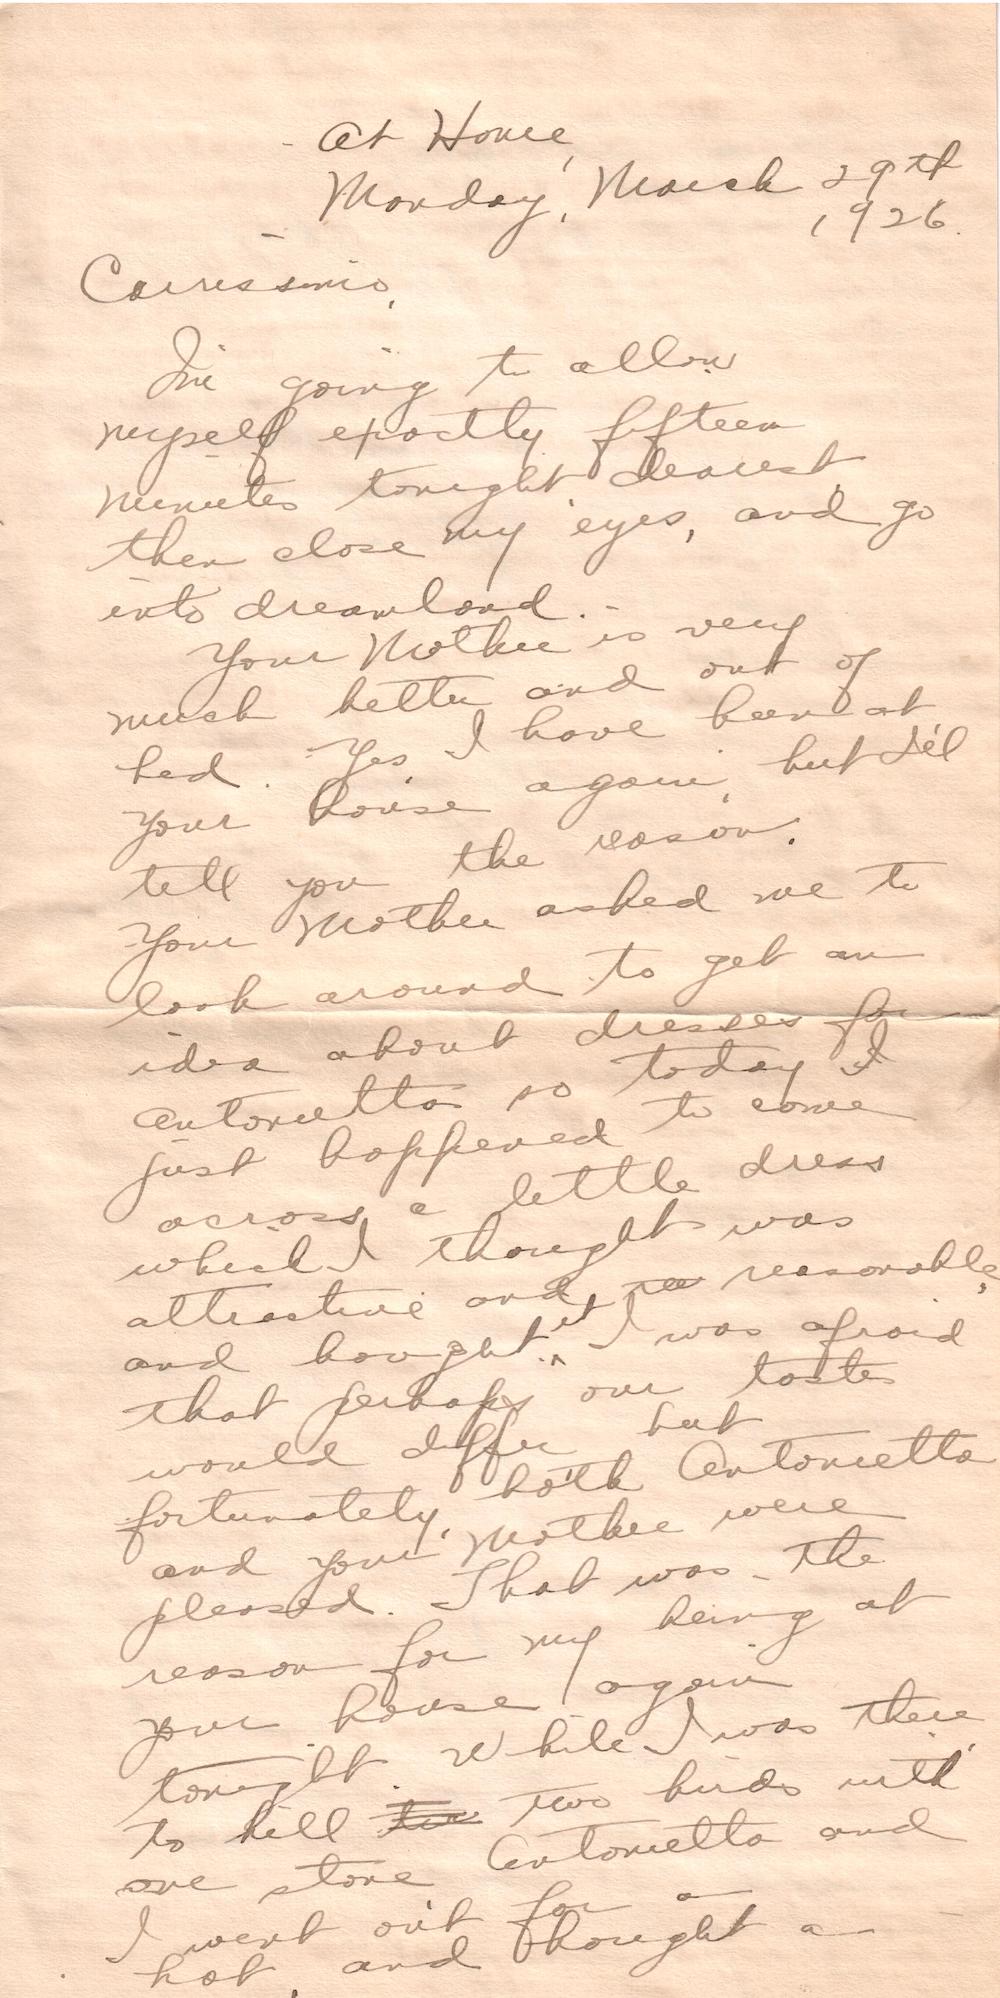 At Home,
Monday, March 29th
1926.
Carissimo,
I'm going to allow
myself exactly fifteen
minutes tonight dearest,
then close my eyes, and go
into dreamland.
Your Mother is very
much better and out of
bed. Yes, I have been at
your house again, but I'll
tell you the reason.
Your Mother asked me to
look around to get an
idea about dresses for
Antonietta so today I
just happened to come
across a little dress
which I thought was
attractive and reasonable,
and bought it. I was afraid
that perhaps our tastes
would differ but
fortunately, both Antonietta
and your Mother were
pleased. That was the
reason for my being at
your house again
tonight. While I was there,
to kill two birds with
one stone Antonietta and
I went out for a
hat, and thought a